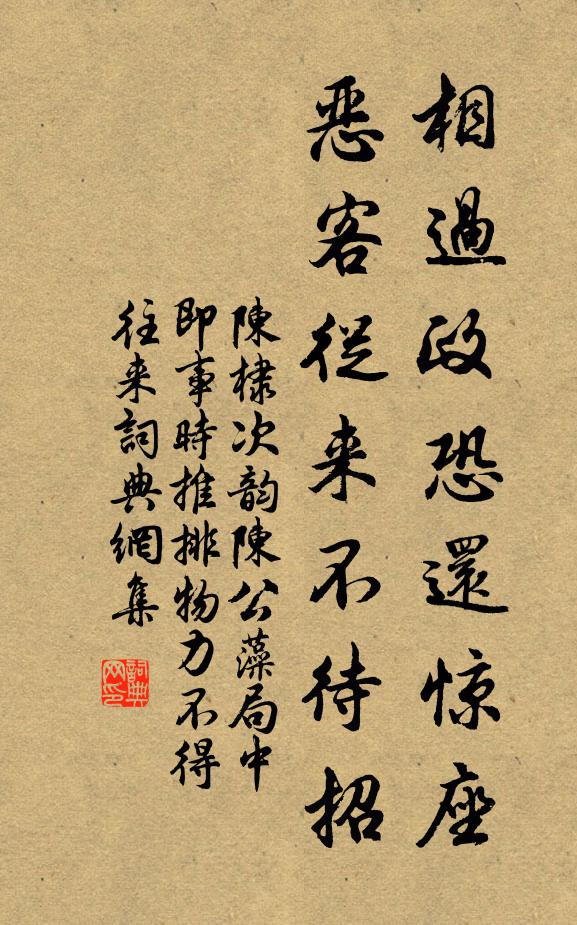 相過政恐還惊座
惡客從来不待招
陳棣次韵陳公藻局中
即事時推排物力不得
往来詞典網集
詞典网印